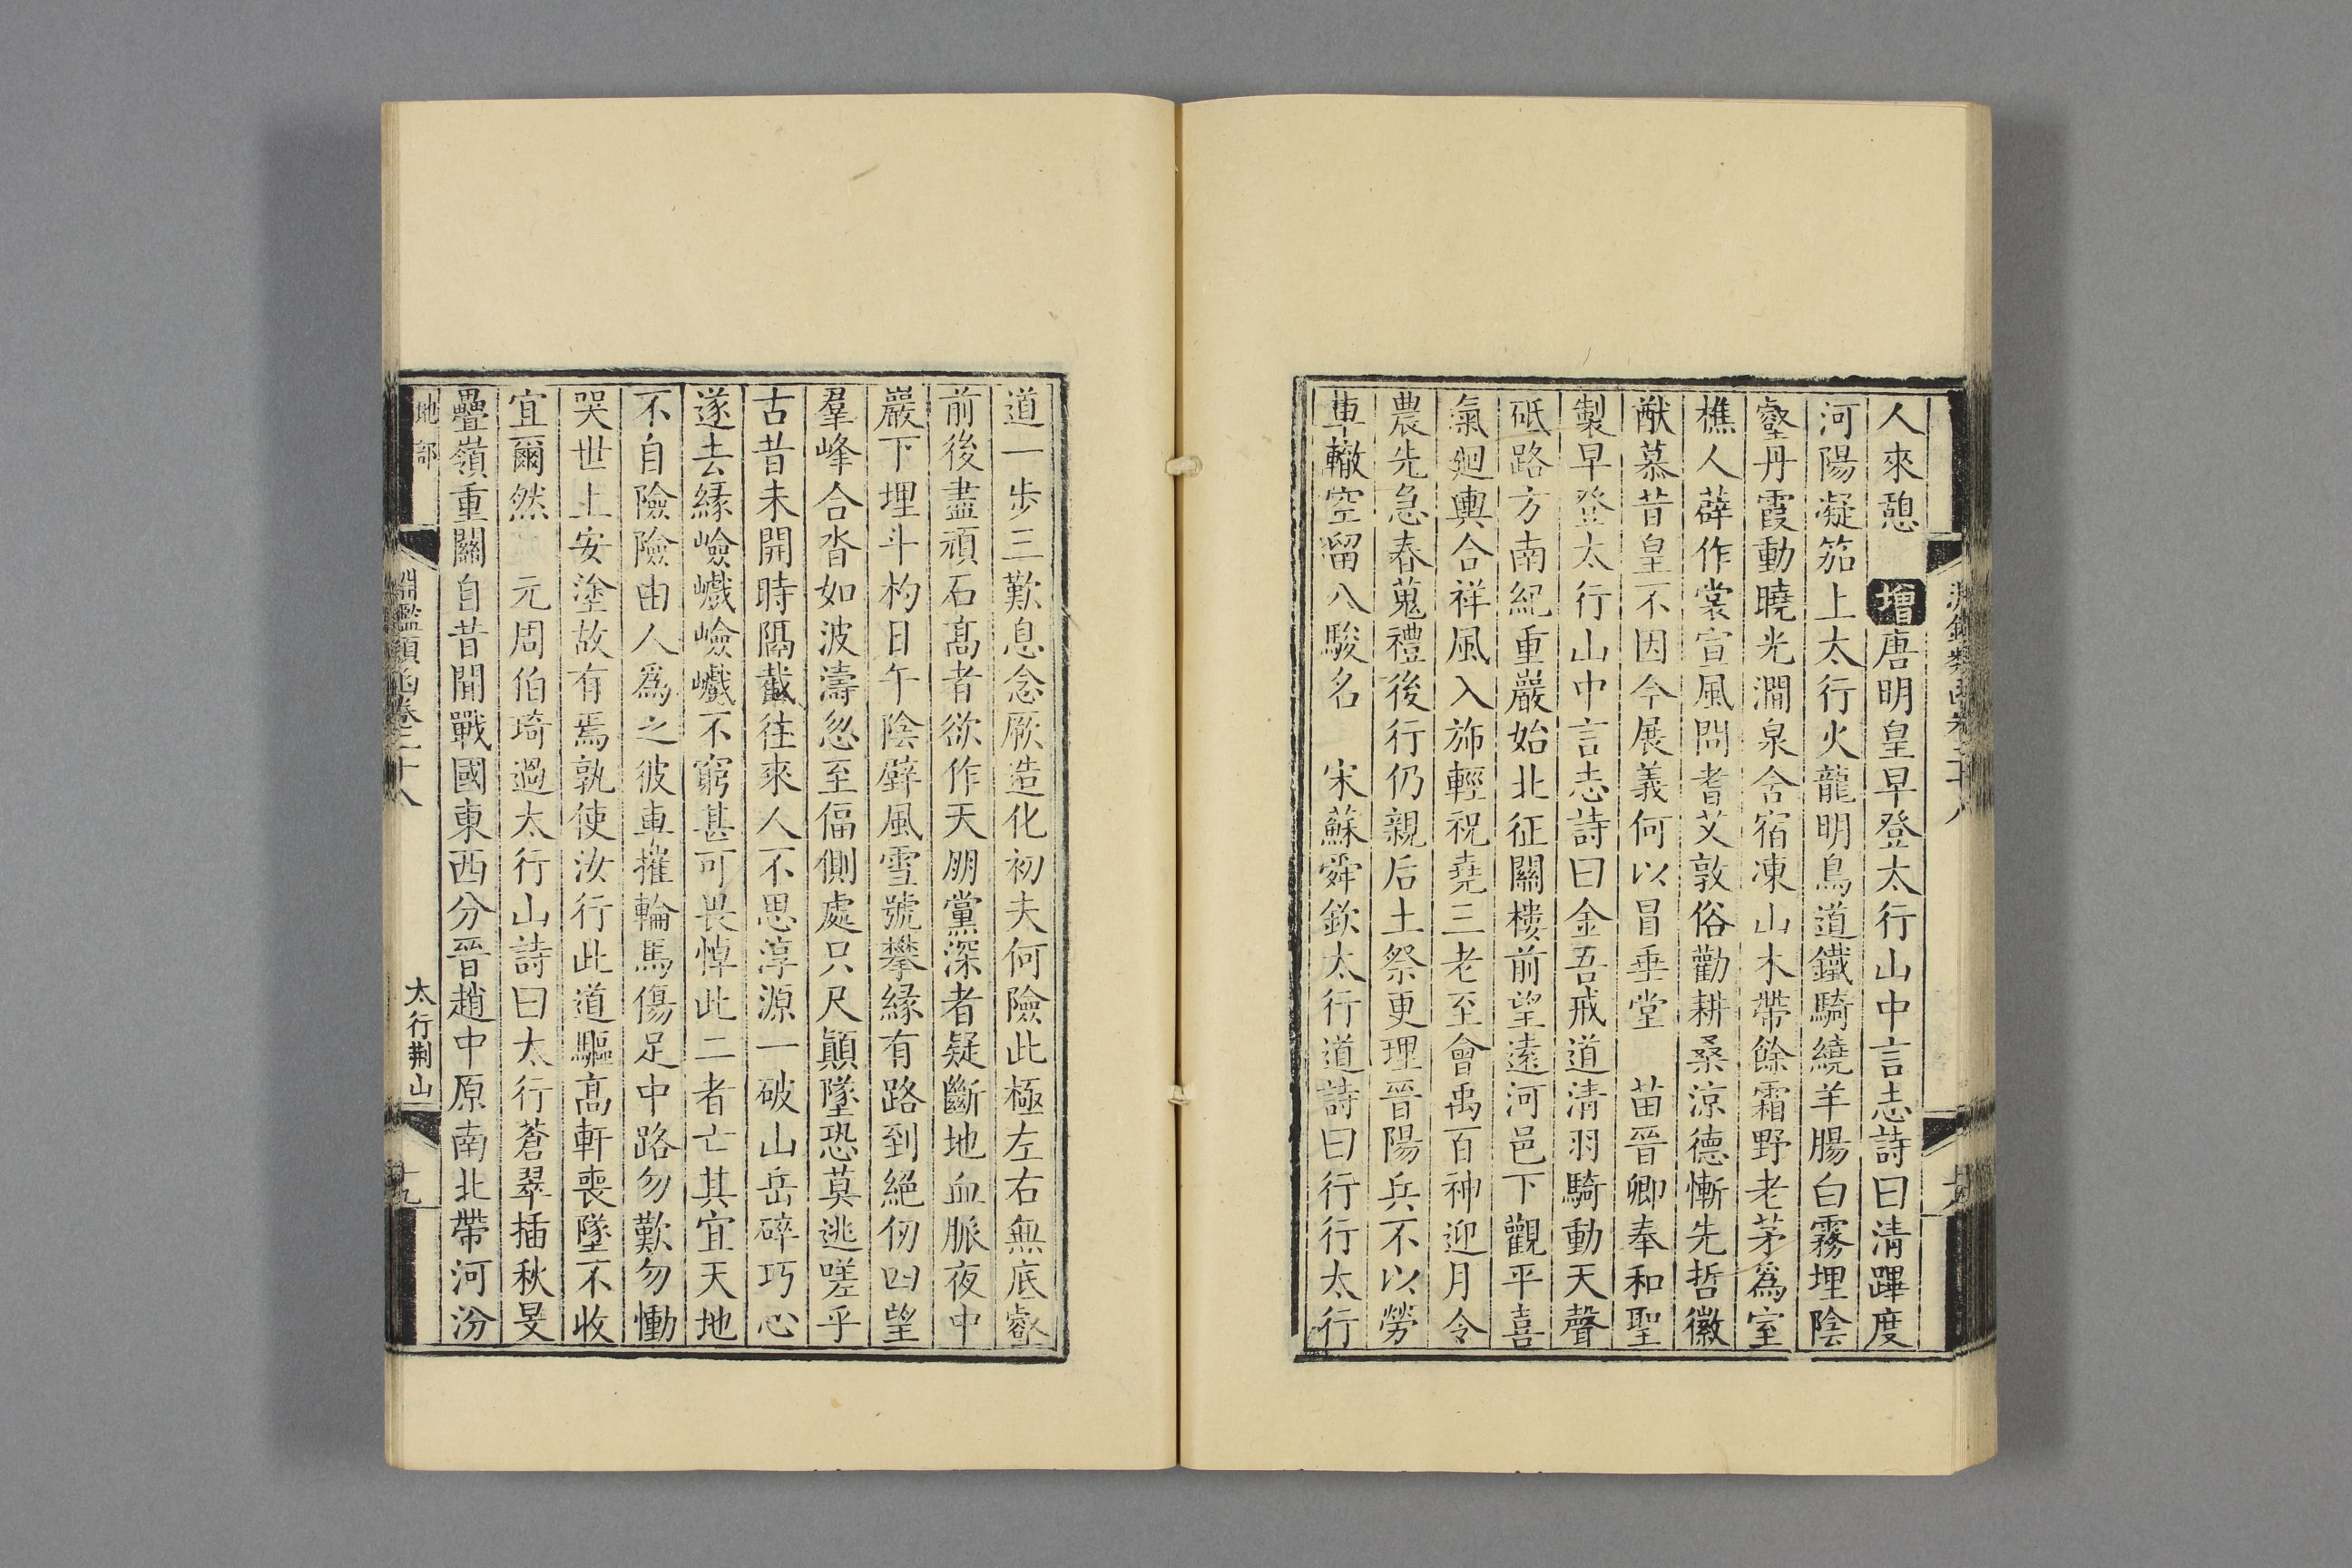 人來憩　增唐明皇早登太行山中言志詩曰清蹕度
河陽凝笳上太行火龍明鳥道鐵騎繞羊腸白霧埋陰
壑丹霞動曉光澗泉含宿凍山木帶餘霜野老茅爲室
樵人薜作裳宣風問耆艾敦俗勸耕桑涼德慚先哲徽
猷慕昔皇不因今展義何以冒垂堂　苗晉卿奉和聖
製早登太行山中言志詩曰金吾戒道清羽騎動天聲
砥路方南紀重巖始北征關樓前望遠河邑下觀平喜
氣迴輿合祥風入旆輕祝堯三老至會禹百神迎月令
農先急春蒐禮後行仍親后土祭更理晉陽兵不以勞
車轍空留八駿名　宋蘇舜欽太行道詩曰行行太行
道一步三歎息念厥造化初夫何險此極左右無底壑
前後盡頑石高者欲作天朋黨深者疑斷地血脈夜中
巖下埋斗杓日午陰壁風雪號攀緣有路到絕仞四望
羣峰合沓如波濤忽至偪側處只尺顚墜恐莫逃嗟乎
古昔未開時隔截往來人不思淳源一破山岳碎巧心
遂去緣嶮巇嶮巇不窮甚可畏悼此二者亡其宜天地
不自險險由人爲之彼車摧輪馬傷足中路勿歎勿慟
哭世上安塗故有焉孰使汝行此道驅高軒喪墜不收
宜爾然　元周伯琦過太行山詩曰太行蒼翠插秋旻
疊嶺重關自昔聞戰國東西分晉趙中原南北帶河汾
地部
淵鑑類函卷二十八
太行荆山
十九